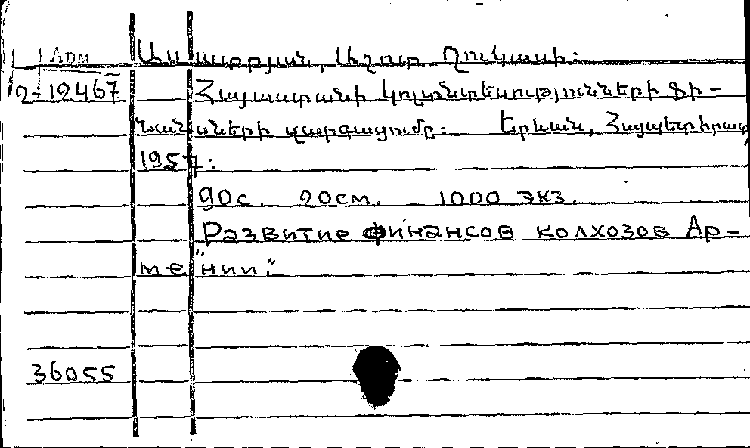 Арм
2-12467
Աշոտ Ղուկասի:
Հայաստանի կոլտնտեսությունների ֆի-
նանսների զարգացումը: Երևան, Հայպետհրատ,
1957:
90с. 20см. 1000 экз.
"Развитие финансов колхозов Ар-
мении".
36055